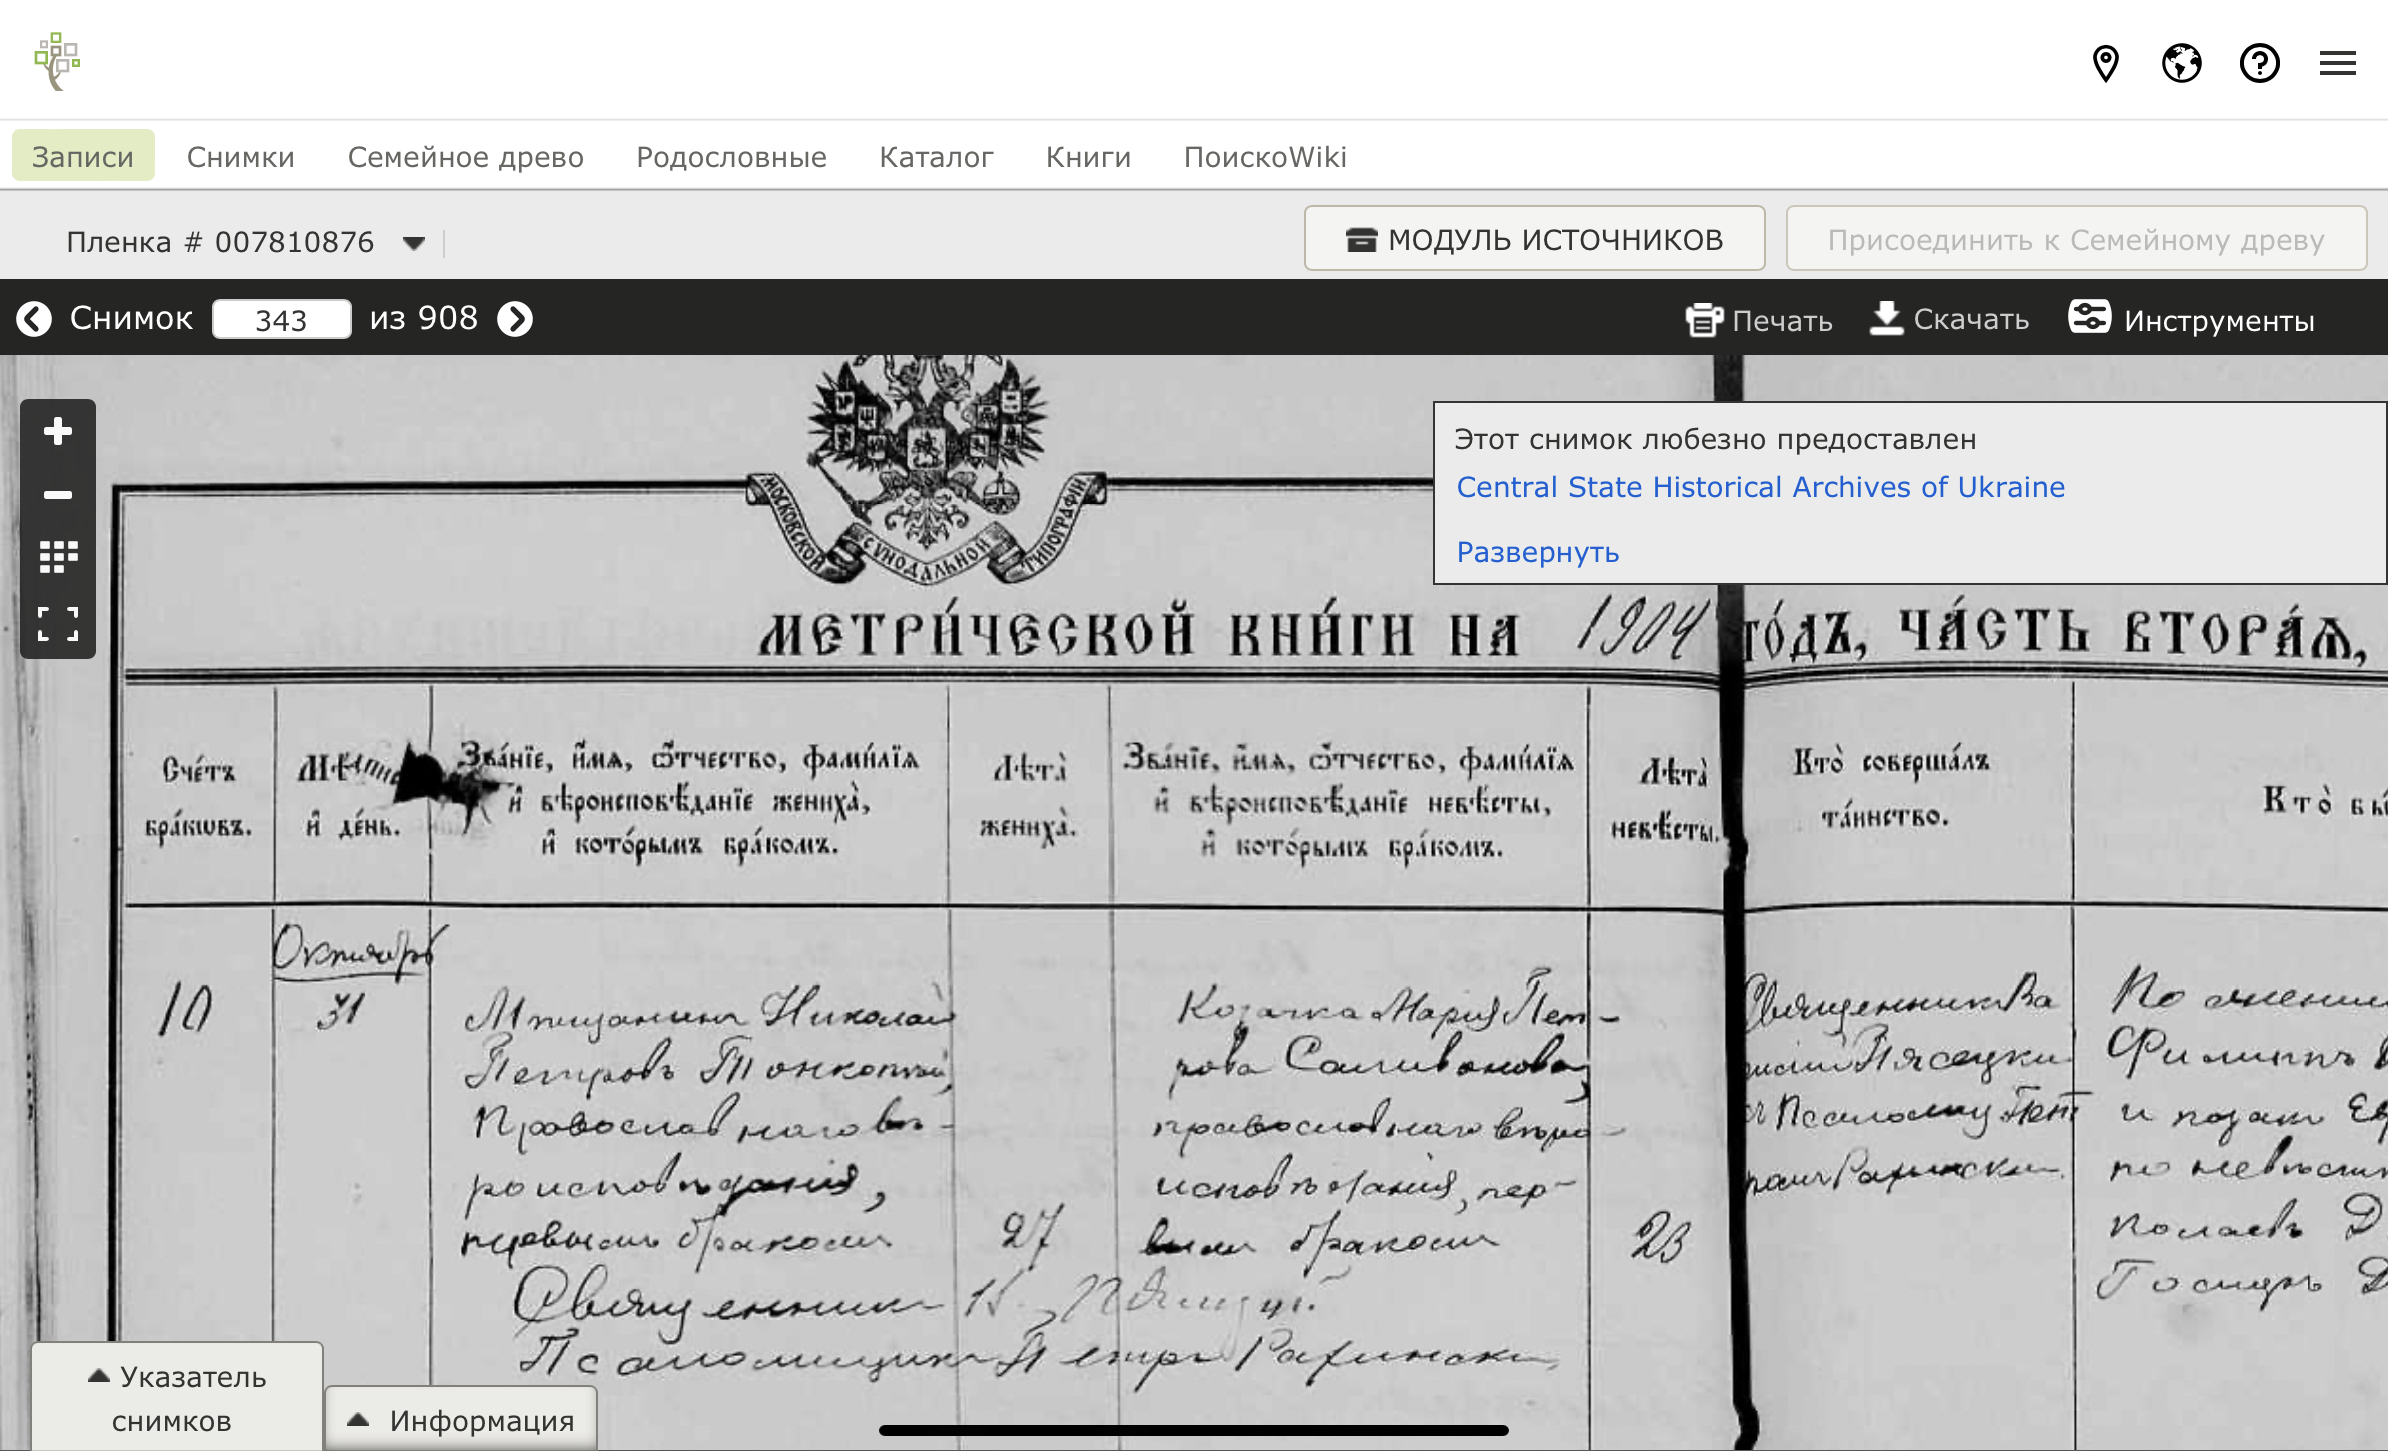 Записи Снимки Семейное древо Родословные Каталог Книги ПоискоWiki
Пленка # 007810876
МОДУЛЬ ИСТОЧНИКОВ
Присоединить к Семейному древу
Снимок 343 из 908
Печать Скачать Инструменты
Этот снимок любезно предоставлен
Central State Historical Archives of Ukraine
Развернуть
МОСКОВСКОЙ СѴНОДАЛЬНОЙ ТИПОГРАФІИ
МЕТРИ́ЧЕСКОЙ КНИ́ГИ НА 1904 ГО́ДЪ, ЧА́СТЬ ВТОРА́Ѧ,
Сче́тъ
бра́кѡвъ.
и҆ де́нь.
Зва́нїе, и҆́мѧ, ѻ҆́тчество, фами́лїѧ
и҆ вѣроисповѣ́данїе жениха̀,
и҆ кото́рымъ бра́комъ.
Лѣта̀
жениха̀.
Зва́нїе, и҆́мѧ, ѻ҆́тчество, фами́лїѧ
и҆ вѣроисповѣ́данїе невѣ́сты,
и҆ кото́рымъ бра́комъ.
Лѣта̀
невѣ́сты.
Кто̀ соверша́лъ
та́инство.
Кто̀
10
Октябрь
31
Мѣщанинъ Николай
Петровъ Тонкотій,
Православнаго вѣ-
роисповѣданія,
первымъ бракомъ
27
Козачка Марія Пет-
рова Саливонова,
православнаго вѣро-
исповѣданія, пер-
вымъ бракомъ
23
Священникъ Ва
Пясецкій
съ Псаломщ. Пет
По женихѣ
Филиппъ
и козакъ
по невѣстѣ
Священникъ
Псаломщикъ Петръ
Указатель
снимков
Информация